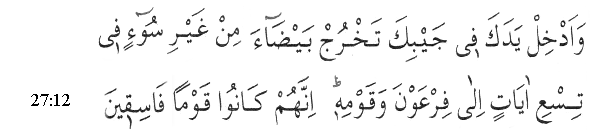 وَاَدْخِلْ يَدَكَ فٖى جَيْبِكَ تَخْرُجْ بَيْضَٓاءَ مِنْ غَيْرِ سُوٓءٍ فٖى
27:12 تِسْعِ اٰيَاتٍ اِلٰى فِرْعَوْنَ وَقَوْمِهٖؕ اِنَّهُمْ كَانُوا قَوْمًا فَاسِقٖينَ